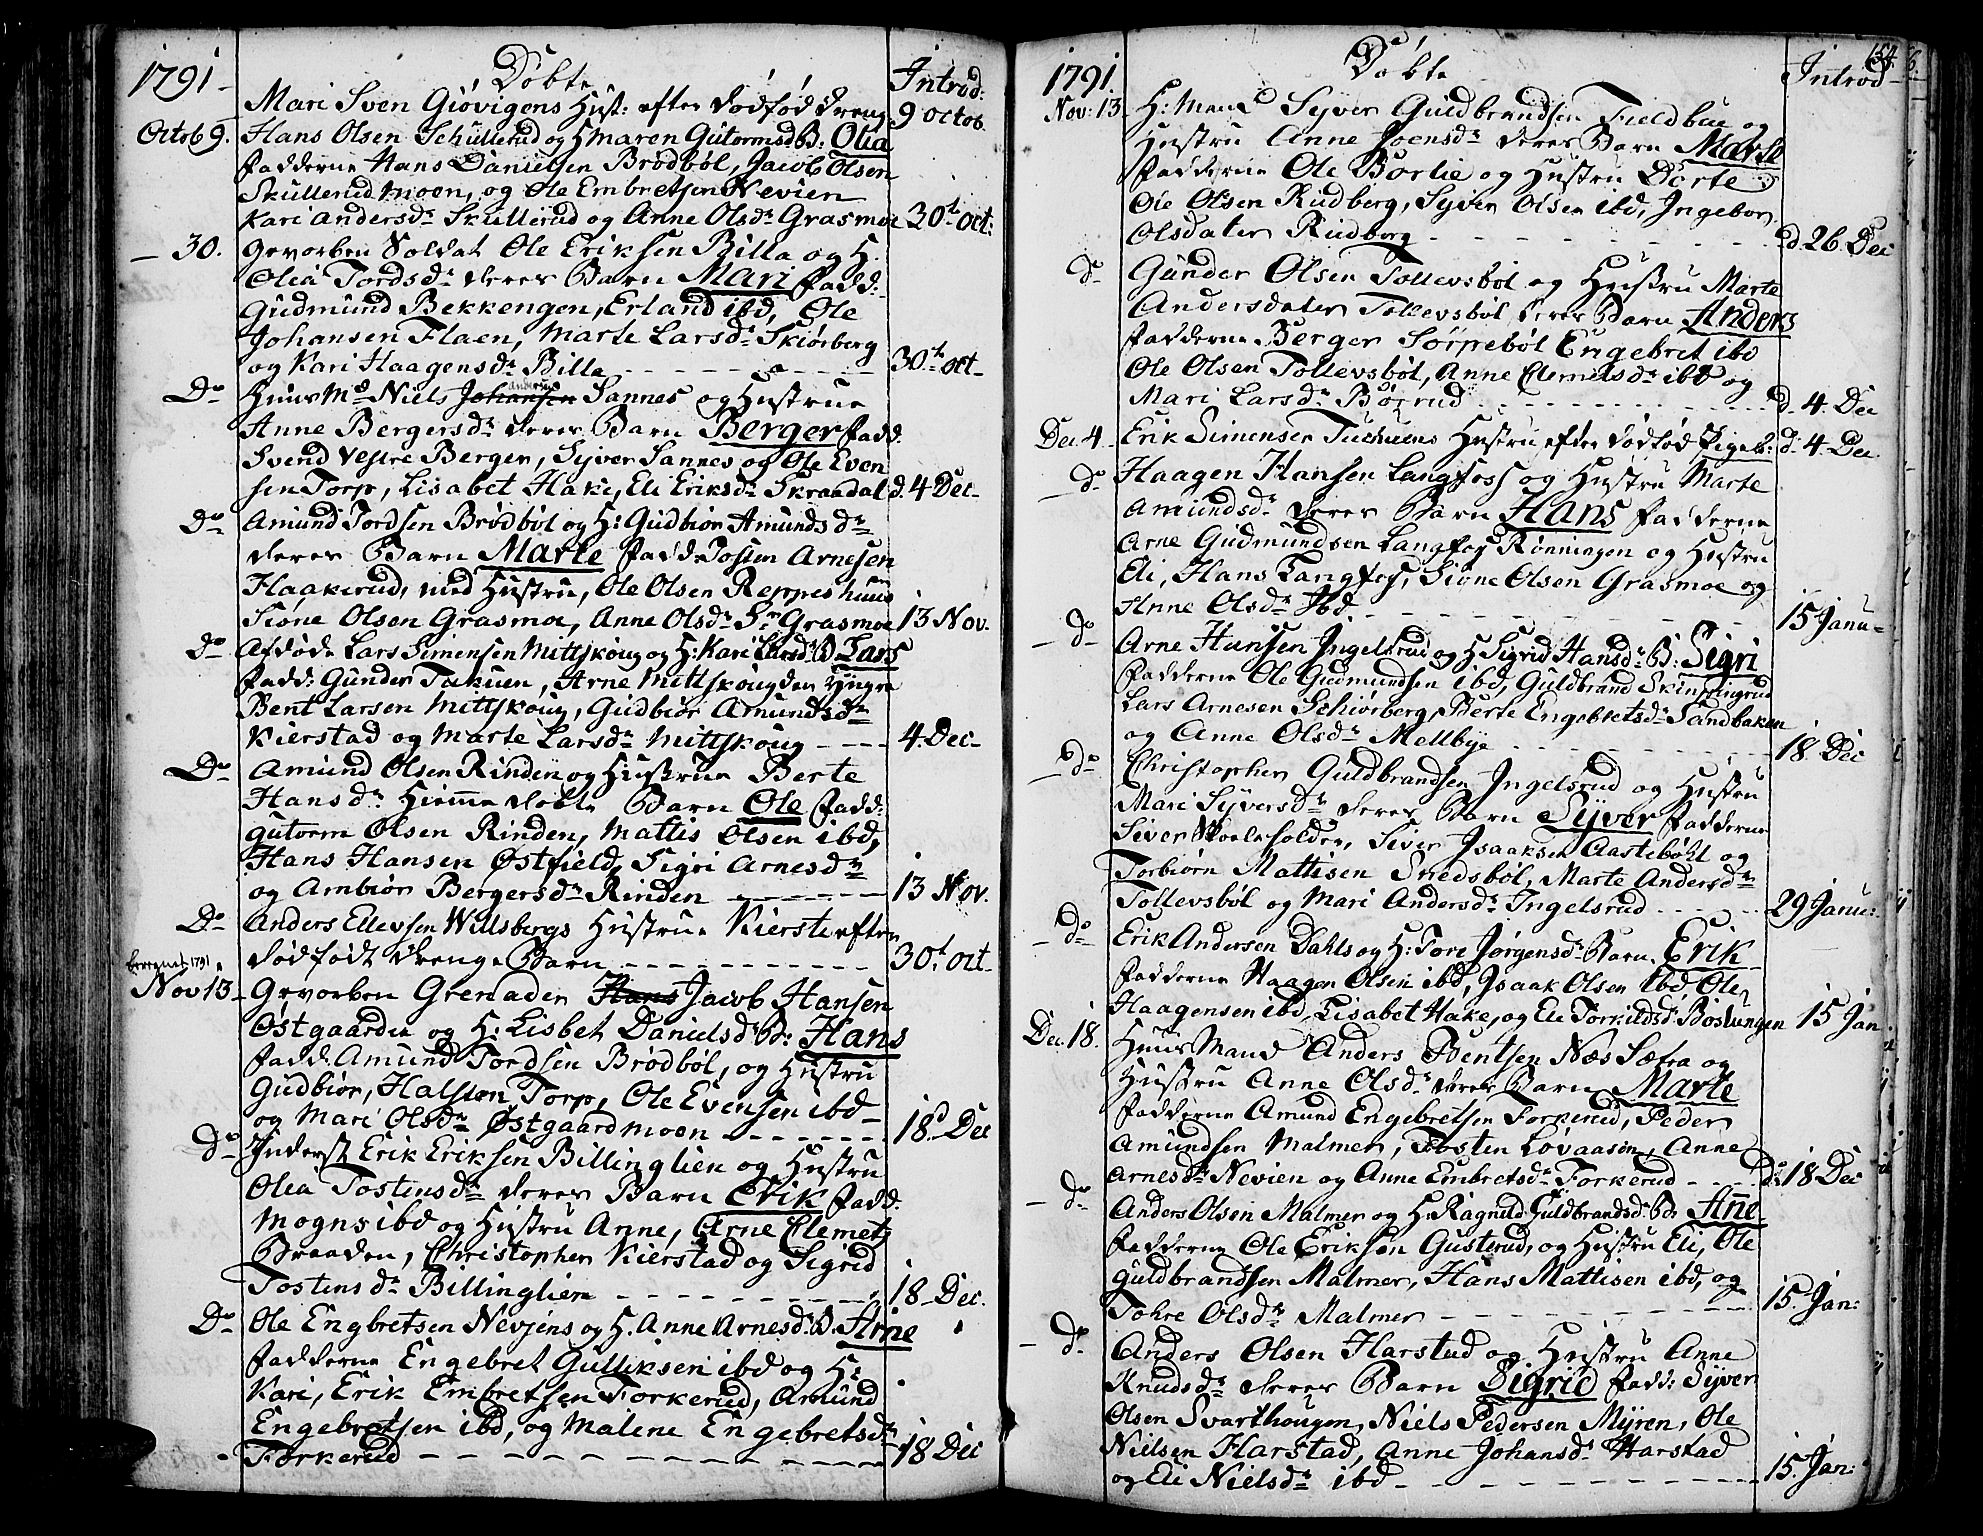 1791
Døbte
Introd:
Mari Sven Giøvigens Hust: efter dødfød dreng
9 octob.
Octob 9. Hans Olsen Schullerud og H Maren Gutormsd B: Olia
fadderne Hans Danielsen Brødbøl, Jacob Olsen
Skullerud moen, og Ole Embretsen Nevien
Kari Andersdr Skullerud og Anne Olsdr Grasmoe 30te oct:
- 30. Gevorben Soldat Ole Eriksen Billa og H.
Olia Tordsdr deres Barn Mari fadd:
Gudmund Bekkengen, Erland ibd, Ole
Johansen Flaen, Marte Larsdr Skiørberg
og Kari Haagensdr Billa - - - - 30te oct-
Do Huus Md Niels Johansen Anders Sannes og Hustrue
Anne Bergersdr deres Barn Berger fadd.
Svend Vestre Berger, Syver Sannes og Ole Even
sen Torp, Lisabet Hake, Eli Eriksdr Skraadal d. 4 Dec-
Do Amund Tordsen Brødbøl og H: Gudbiør Amundsdr
deres Barn Marte fadd. Tosten Arnesen
Haakerud, med Hustrue, Ole Olsen Reppeshuus
Sione Olsen Grasmoe, Anne Olsdr Sr Grasmoe 13 Nov.
Do Afdøde Lars Simensen Mittskoug og H: Kari Larsdr B Lars
fadd: Gunder Tukuen, Arne Mittskoug den Yngre
Bent Larsen Mittskoug, Gudbiør Amundsdr
Kierstad og Marte Larsdr Mittskoug - - - - 4. Dec-
Do Amund Olsen Rinden og Hustrue Berte
Hansdr Hiemme døbte Barn Ole fadd:
Gutorm Olsen Rinden, Mattis Olsen ibd,
Hans Hansen Østfield, Sigri Arnesdr
og Ambiør Bergersdr Rinden - - - - 13 Nov.
Do Anders Ellevsen Wilsbergs Hustrue Kierste efter
dødfødt drenge Barn - - - - 30te oct-
1791
Nov 13 Gevorben Grenader Hans Jacob Hansen
Østgaarden og H: Lisbet Danielsdr B: Hans
fadd. Amund Tordsen Brødbøl, og Hustru
Gudbiør, Halsten Torp, Ole Evensen ibd
og Mari Olsdr Østgaardmoen - - - - 18d Dec
Do Inderst Erik Eriksen Billinglien og Hustru
Olea Tostensdr deres Barn Erik fadd.
Mogns ibd og Hustru Anne, Arne Clemets
Braaden, Christopher Kierstad og Sigrid
Tostensdr Billinglien - - - - 18 Dec.
Do Ole Engbretsen Nevjens og H. Anne Arnesdr B. Arne
fadderne Engebret Gulliksen ibd og H:
Kari, Erik Embretsen Torkerud, Amund
Engebretsen ibd, og Malene Engebretsdr
Torkerud - - - - 18 Dec
1791.
Døbte
Introd
154
Nov: 13 H: Mand Syver Guldbrandsen Fieldbue og
Hustru Anne Joensdr deres Barn Marte
fadderne Ole Borlie og Hustru Dorte
Ole Olsen Rudberg, Syver Olsen ibd, Ingebor
Olsdater Rudberg - - - - d. 26. Dec
do Gunder Olsen Tollevsbøl og Hustru Marte
Andersdater Tollevsbøl deres Barn Anders
fadderne Berger Sørpebøl Engebret ibd
Ole Olsen Tollevsbøl, Anne Clemetsdr ibd og
Mari Larsdr Børrud - - - - d. 4. Dec
Dec. 4 Erik Simensen Tuchuens Hustru efter dødfød Pigeb: d: 4. Dec.
do Haagen Hansen Langfoss og Hustru Marte
Amundsdr deres Barn Hans fadderne
Arne Gudmundsen Langfos Rønningen og Hustru
Eli, Hans Langfos, Sione Olsen Grasmoe og
Anne Olsdr Ibd - - - - 15 Janu-
do Arne Hansen Ingelsrud og H Sigrid Hansdr B: Sigri
fadderne Ole Gudmundsen ibd, Guldbrand Skinpingrud
Lars Arnesen Schiørberg, Berte Engebretsdr Sandbaken
og Anne Olsdr Mellbye - - - - 18. Dec
do Christopher Guldbrandsen Ingelsrud og Hustru
Mari Syversdr deres Barn Syver fadderne
Siver Skoleholder, Siver Isaaksen Aastebøhl og
Torbiørn Mattisen Snedsbøl, Marte Andersdr
Tollevsbøl og Mari Andersdr Ingelsrud - - - - 29 Janu:
do Erik Andersen Dahls og H: Tore Jørgensdr Barn, Erik
fadderne Haagen Olsen ibd, Isaak Olsen ibd Ole
Haagensen ibd, Lisabet Hake, og Ele Torkildsdr Boslungen 15 Jan
Dec. 18. Huus Mand Anders Bentsen Næs Sætra og
Hustru Anne Olsdr deres Barn Marte
fadderne Amund Engebretsen Torkerud, Peder
Amundsen Malmer, Tosten Lovaasen, Anne
Arnesdr Nevien og Anne Embretsdr Torkerud - - - - d. 18 Dec
do Anders Olsen Malmer og H: Ragnild Guldbrandsdr B: Ane
fadderne Ole Eriksen Gusterud, og Hustru Eli, Ole
Guldbrandsen Malmer, Hans Mattisen ibd, og
Tohre Olsdr Malmer - - - - 15. Jan:
do Anders Olsen Harstad og Hustru Anne
Knudsdr deres Barn Sigrid fadd: Syver
Olsen Svarthougen, Niels Pedersen Myren, Ole
Nielsen Harstad, Anne Johansdr Harstad
og Eli Nielsdr ibd - - - - 15. Jan: